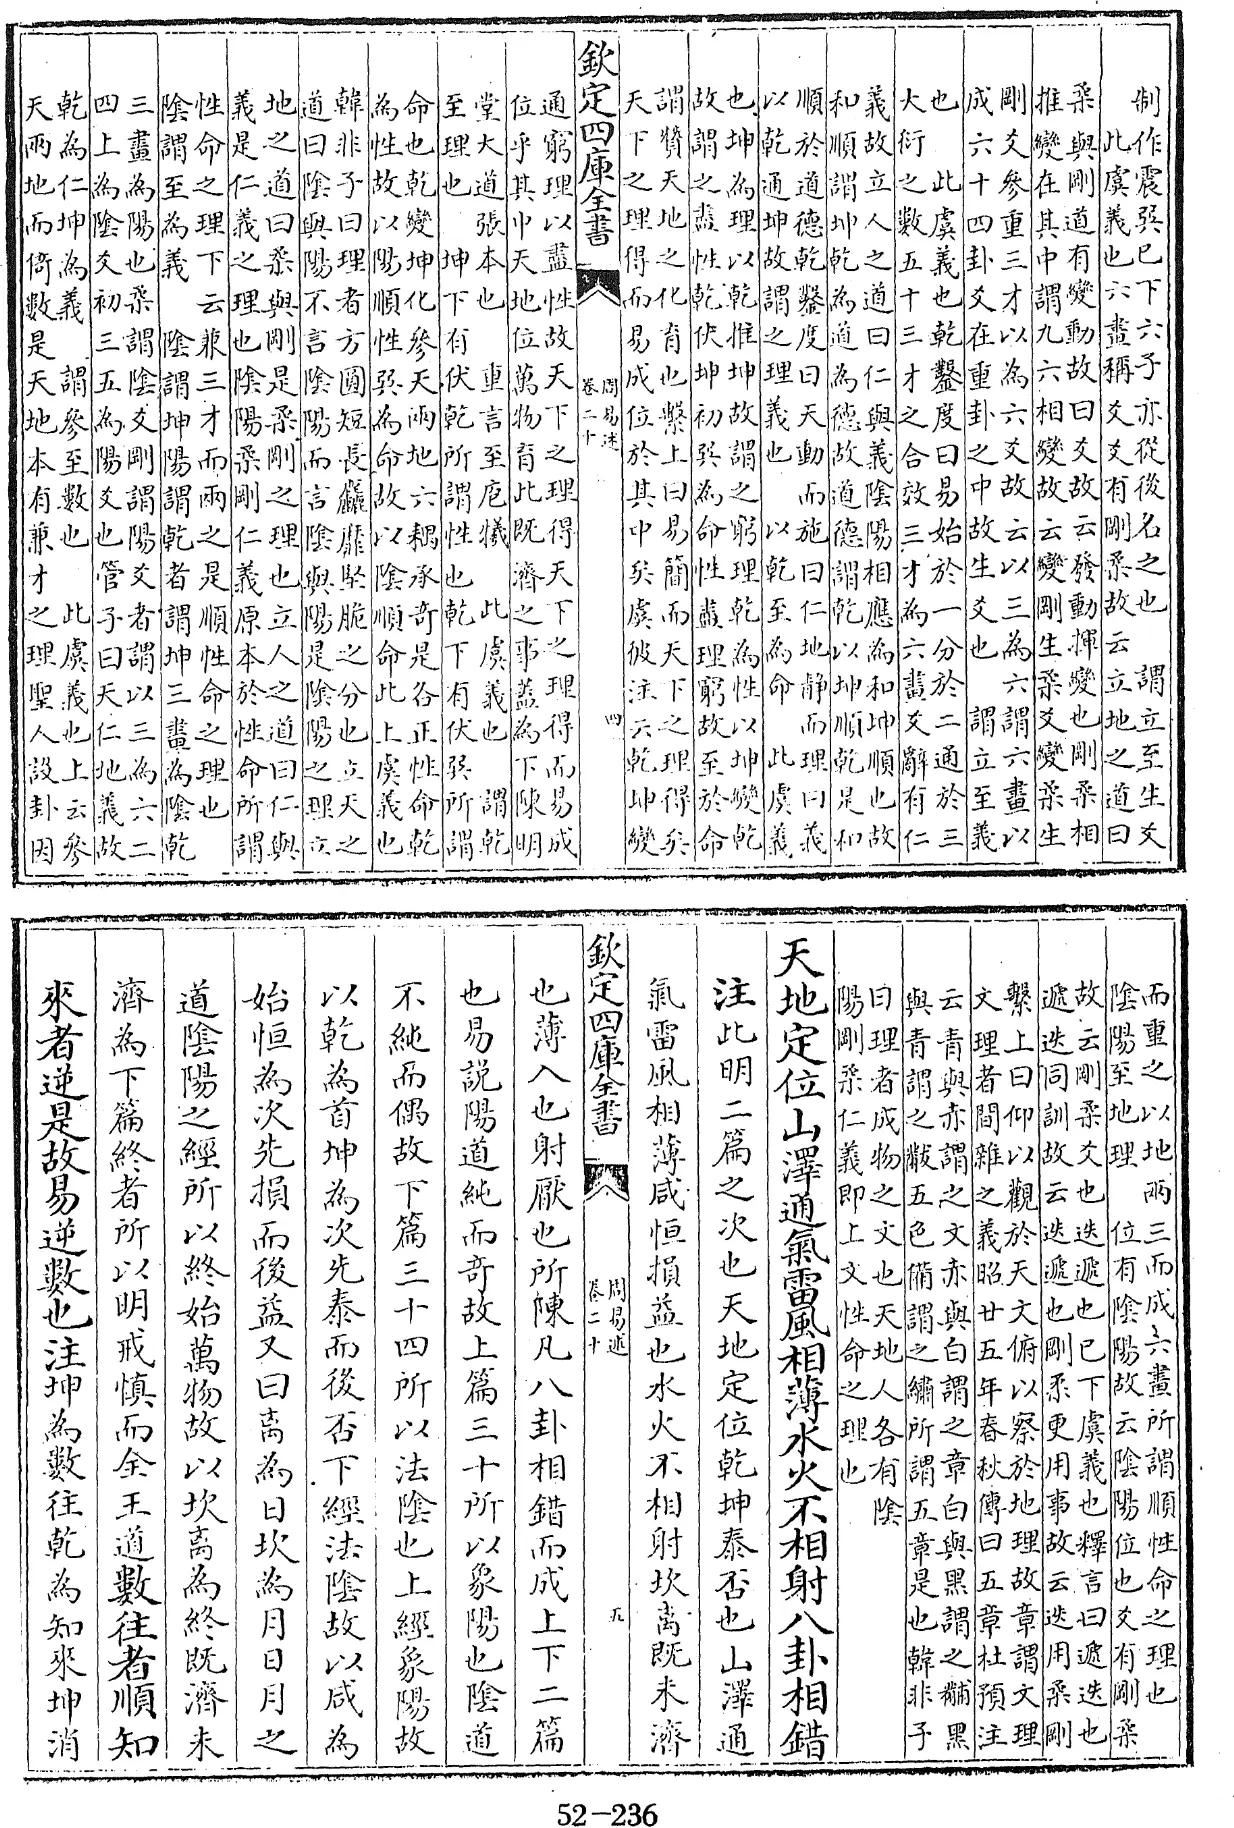 制作震巽已下六子亦從後名之也　謂立至生爻
此虞義也六畫稱爻爻有剛柔故云立地之道曰
柔與剛道有變動故曰爻故云發動揮變也剛柔相
推變在其中謂九六相變故云變剛生柔爻變柔生
剛爻參重三才以為六爻故云以三為六謂六畫以
成六十四卦爻在重卦之中故生爻也　謂立至義
也　此虞義也乾鑿度曰易始於一分於二通於三
大衍之數五十三才之合效三才為六畫爻辭有仁
義故立人之道曰仁與義陰陽相應為和坤順也故
和順謂坤乾為道為德故道德謂乾以坤順乾是和
順於道德乾鑿度曰天動而施曰仁地静而理曰義
以乾通坤故謂之理義也　以乾至為命　此虞義
也坤為理以乾推坤故謂之窮理乾為性以坤變乾
故謂之盡性乾伏坤初巽為命性盡理窮故至於命
謂贊天地之化育也繫上曰易簡而天下之理得矣
天下之理得而易成位於其中矣虞彼注云乾坤變
欽定四庫全書
周易述
卷二十
四
通窮理以盡性故天下之理得天下之理得而易成
位乎其中天地位萬物育此既濟之事葢為下陳明
堂大道張本也　重言至庖犧　此虞義也　謂乾
至理也　坤下有伏乾所謂性也乾下有伏巽所謂
命也乾變坤化參天兩地六耦承奇是各正性命乾
為性故以陽順性巽為命故以陰順命此上虞義也
韓非子曰理者方圓短長麤靡堅脆之分也立天之
道曰陰與陽不言陰陽而言陰與陽是陰陽之理立
地之道曰柔與剛是柔剛之理也立人之道曰仁與
義是仁義之理也陰陽柔剛仁義原本於性命所謂
性命之理下云兼三才而兩之是順性命之理也
陰謂至為義　陰謂坤陽謂乾者謂坤三畫為陰乾
三畫為陽也柔謂陰爻剛謂陽爻者謂以三為六二
四上為陰爻初三五為陽爻也管子曰天仁地義故
乾為仁坤為義　謂參至數也　此虞義也上云參
天兩地而倚數是天地本有兼才之理聖人設卦因
而重之以地兩三而成六畫所謂順性命之理也
陰陽至地理　位有陰陽故云陰陽位也爻有剛柔
故云剛柔爻也迭遞也已下虞義也釋言曰遞迭也
遞迭同訓故云迭遞也剛柔更用事故云迭用柔剛
繫上曰仰以觀於天文俯以察於地理故章謂文理
文理者間雜之義昭廿五年春秋傳曰五章杜預注
云青與赤謂之文赤與白謂之章白與黑謂之黼黑
與青謂之黻五色備謂之繡所謂五章是也韓非子
曰理者成物之文也天地人各有陰
陽剛柔仁義即上文性命之理也
天地定位山澤通氣雷風相薄水火不相射八卦相錯
注此明二篇之次也天地定位乾坤泰否也山澤通
氣雷風相薄咸恒損益也水火不相射坎离既未濟
欽定四庫全書
周易述
卷二十
五
也薄入也射厭也所陳凡八卦相錯而成上下二篇
也易說陽道純而奇故上篇三十所以象陽也陰道
不純而偶故下篇三十四所以法陰也上經象陽故
以乾為首坤為次先泰而後否下經法陰故以咸為
始恒為次先損而後益又曰离為日坎為月日月之
道陰陽之經所以終始萬物故以坎离為終既濟未
濟為下篇終者所以明戒慎而全王道數往者順知
來者逆是故易逆數也注坤為數往乾為知來坤消
52-236